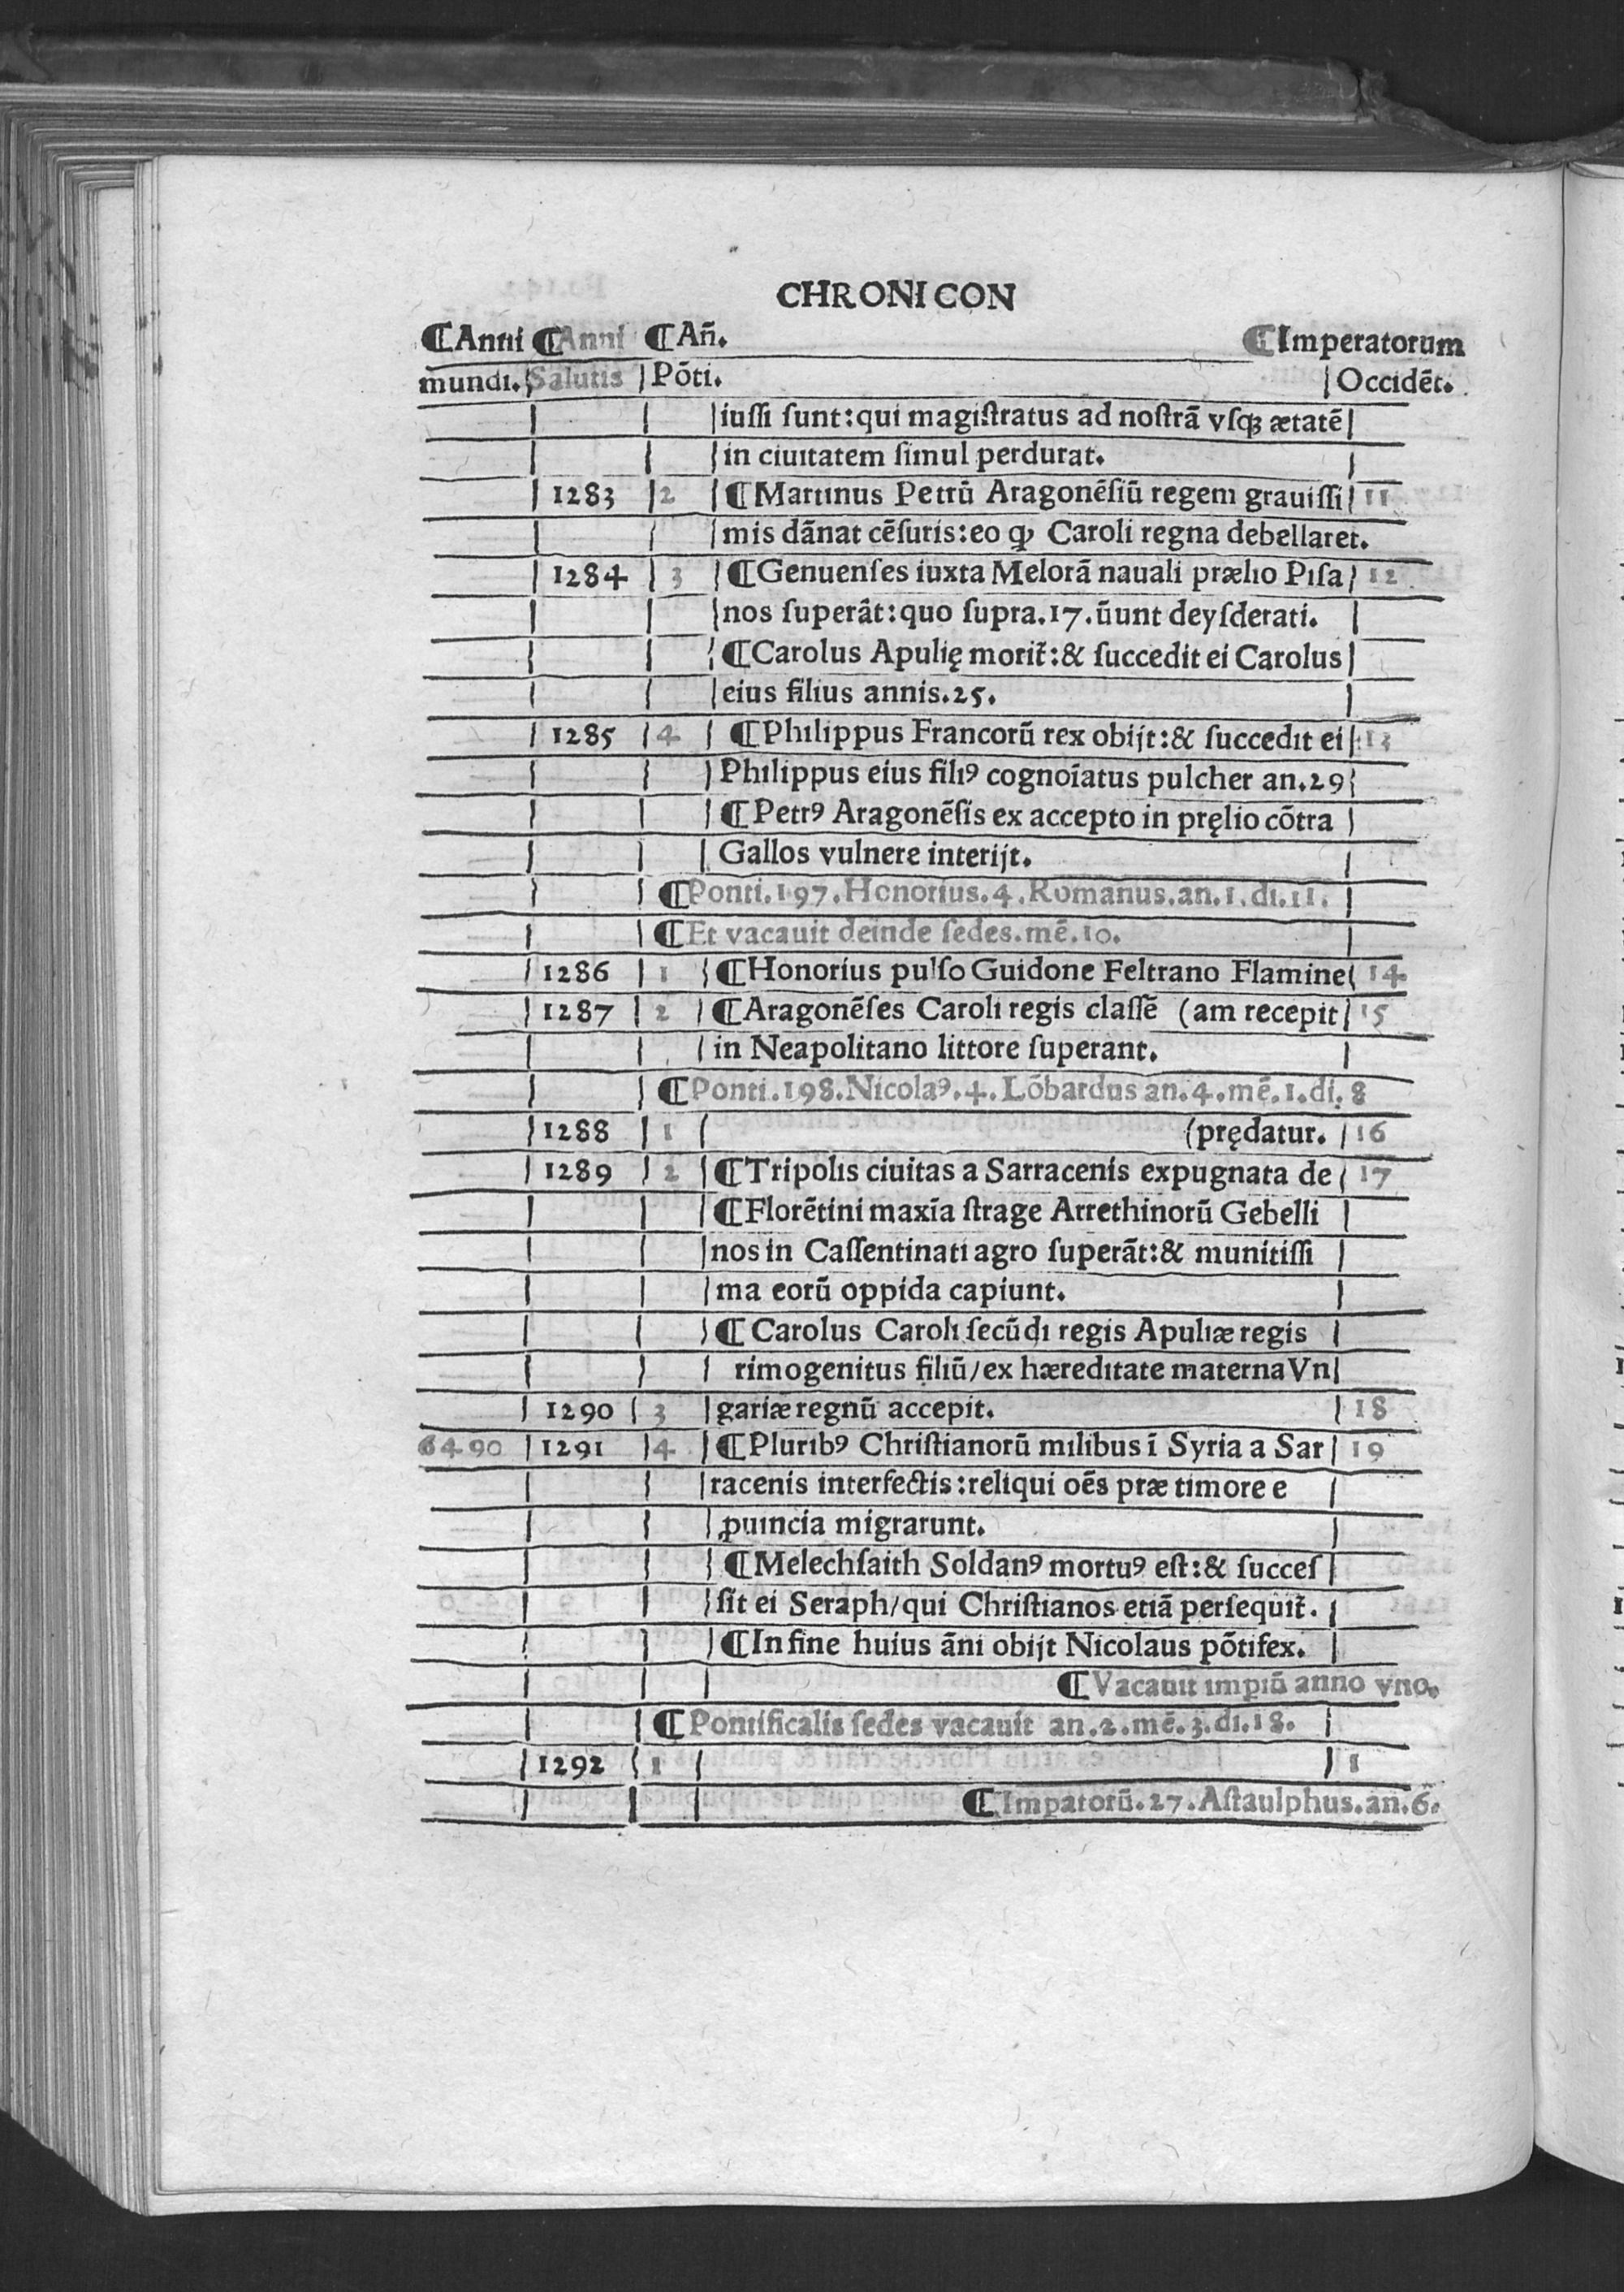 CHRONICON
¶Anni ¶Anni ¶Añ. ¶Imperatorum
mundi. Salutis Põti. Occidẽt.
iussi sunt: qui magistratus ad nostrã vsqꝫ ætatẽ
in ciuitatem simul perdurat.
1283 2 ¶Martinus Petrũ Aragonẽsiũ regem grauissi 11
mis dãnat cẽsuris: eo ꝙ Caroli regna debellaret.
1284 3 ¶Genuenses iuxta Melorã nauali prælio Pisa 12
nos superãt: quo supra.17.ũunt deysderati.
¶Carolus Apulię morit̃: & succedit ei Carolus
eius filius annis.25.
1285 4 ¶Philippus Francorũ rex obijt: & succedit ei 13
Philippus eius filiꝰ cognoĩatus pulcher an.29
¶Petrꝰ Aragonẽsis ex accepto in pręlio cõtra
Gallos vulnere interijt.
¶Ponti.197.Honorius.4.Romanus.an.1.di.11.
¶Et vacauit deinde sedes.mẽ.10.
1286 1 ¶Honorius pulso Guidone Feltrano Flamine 14
1287 2 ¶Aragonẽses Caroli regis classẽ (am recepit 15
in Neapolitano littore superant.
¶Ponti.198.Nicolaꝰ.4.Lõbardus an.4.mẽ.1.di.8
1288 1 (prędatur. 16
1289 2 ¶Tripolis ciuitas a Sarracenis expugnata de 17
¶Florẽtini maxĩa strage Arrethinorũ Gebelli
nos in Cassentinati agro superãt: & munitissi
ma eorũ oppida capiunt.
¶Carolus Caroli secũdi regis Apuliæ regis
rimogenitus filiũ/ex hæreditate materna Vn
1290 3 gariæ regnũ accepit. 18
6490 1291 4 ¶Pluribꝰ Christianorũ milibus ĩ Syria a Sar 19
racenis interfectis: reliqui oẽs præ timore e
ꝓuincia migrarunt.
¶Melechsaith Soldanꝰ mortuꝰ est: & succes
sit ei Seraph/qui Christianos etiã persequit̃.
¶In fine huius ãni obijt Nicolaus põtifex.
¶Vacauit imꝑiũ anno vno.
¶Pontificalis sedes vacauit an.2.mẽ.3.di.18.
1292 1 1
¶Imꝑatorũ.27.Astaulphus.an.6.